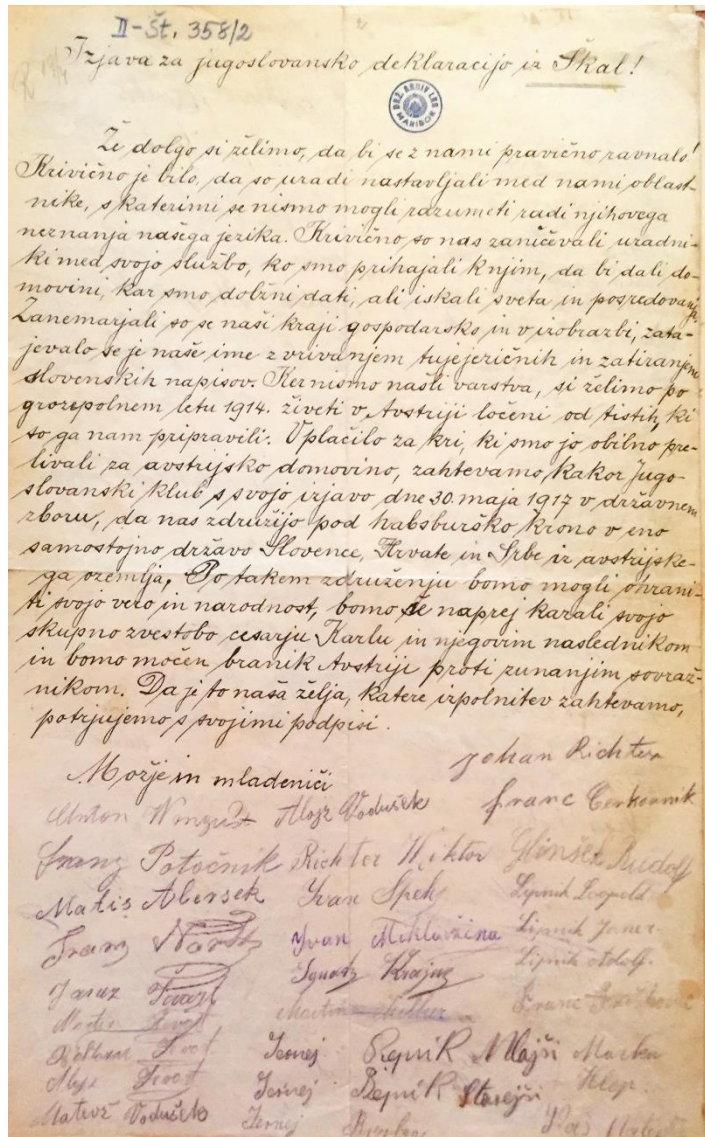 II-Št. 358/2
Izjava za jugoslovansko deklaracijo iz Škal!
DRŽ. ARHIV LRS
MARIBOR
Že dolgo si želimo, da bi se z nami pravično ravnalo!
Krivično je bilo, da so uradi nastavljali med nami oblast-
nike, s katerimi se nismo mogli razumeti radi njihovega
neznanja našega jezika. Krivično so nas zaničevali uradni-
ki med svojo službo, ko smo prihajali k njim, da bi dali do-
movini, kar smo dolžni dati, ali iskali sveta in posredovanja.
Zanemarjali so se naši kraji gospodarsko in v izobrazbi, zata-
jevalo se je naše ime z vrivanjem tujejezičnih in zatiranjem
slovenskih napisov. Ker nismo našli varstva, si želimo po
grozepolnem letu 1914. živeti v Avstriji ločeni od tistih, ki
so ga nam pripravili. V plačilo za kri, ki smo jo obilno pre-
livali za avstrijsko domovino, zahtevamo, kakor Jugo-
slovanski klub s svojo izjavo dne 30. maja 1917 v državnem
zboru, da nas združijo pod habsburško krono v eno
samostojno državo Slovence, Hrvate in Srbe iz avstrijske-
ga ozemlja. Po takem združenju bomo mogli ohrani-
ti svojo vero in narodnost, bomo še naprej kazali svojo
skupno zvestobo cesarju Karlu in njegovim naslednikom
in bomo močen branik Avstriji proti zunanjim sovraž-
nikom. Da je to naša želja, katere izpolnitev zahtevamo,
potrjujemo s svojimi podpisi.
Johan Richter
Možje in mladeniči
Anton Alojz Vodušek Franc
Franz Potočnik Richter Wiktor Glinšek Rudolf
Matis Abersek Ivan Speh Lipnik Leopold
Franz Ivan Miklavžina Lipnik Janez
Janez Ignatz Krajnz Lipnik Adolf.
Martin Martin Franc
Jernej Repnik Mlajši
Alojz Jernej Repnik Starejši
Matevž Vodušek Jernej